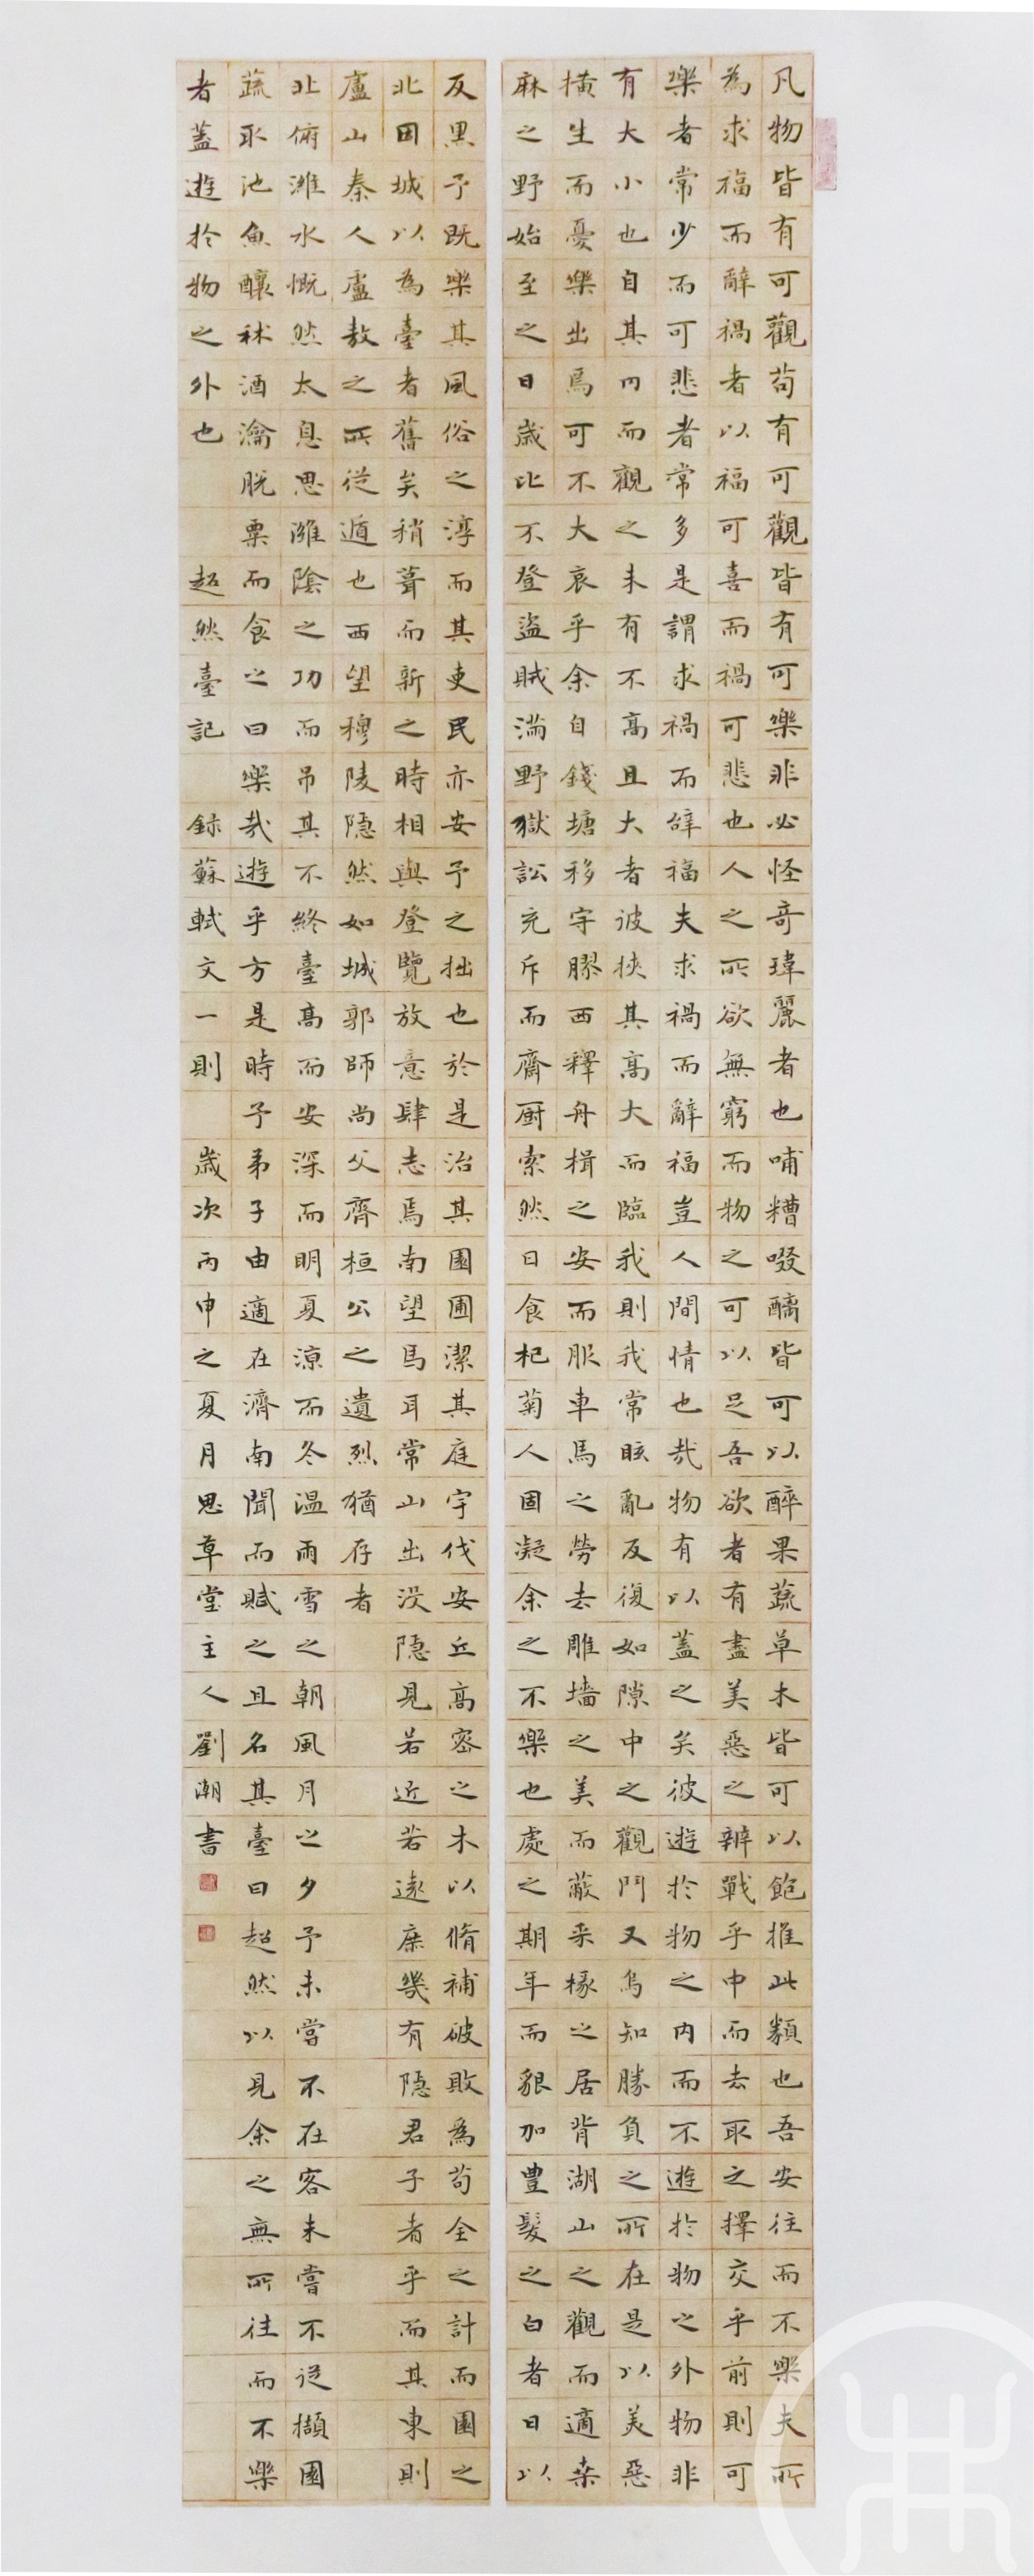 凡物皆有可觀苟有可觀皆有可樂非必怪奇瑋麗者也哺糟啜醨皆可以醉果蔬草木皆可以飽推此類也吾安往而不樂夫所
為求福而辭禍者以福可喜而禍可悲也人之所欲無窮而物之可以足吾欲者有盡美惡之辨戰乎中而去取之擇交乎前則可
樂者常少而可悲者常多是謂求禍而辭福夫求禍而辭福豈人間情也哉物有以蓋之矣彼遊於物之內而不遊於物之外物非
有大小也自其內而觀之未有不高且大者彼挾其高大而臨我則我常眩亂反復如隙中之觀鬥又烏知勝負之所在是以美惡
橫生而憂樂出焉可不大哀乎余自錢塘移守膠西釋舟楫之安而服車馬之勞去雕墻之美而蔽采椽之居背湖山之觀而適桑
麻之野始至之日歲比不登盜賊滿野獄訟充斥而齋厨索然日食杞菊人固凝余之不樂也處之期年而貌加豊髮之白者日以
反黑予既樂其風俗之淳而其吏民亦安予之拙也於是治其園圃潔其庭宇伐安丘高密之木以脩補破敗為苟全之計而園之
北因城以為臺者舊矣稍葺而新之時相與登覽放意肆志焉南望馬耳常山出没隱見若近若遠庶幾有隱君子者乎而其東則
廬山秦人盧敖之所從遁也西望穆陵隱然如城郭師尚父齊桓公之遺烈猶存者
北俯濰水慨然太息思淮陰之功而吊其不終臺高而安深而明夏涼而冬温雨雪之朝風月之夕予未嘗不在客未嘗不從擷園
蔬取池魚釀秫酒瀹脱粟而食之曰樂哉遊乎方是時予弟子由適在濟南聞而賦之且名其臺曰超然以見余之無所往而不樂
者蓋遊於物之外也 超然臺記 録蘇軾文一則 歲次丙申之夏月思草堂主人劉潮書